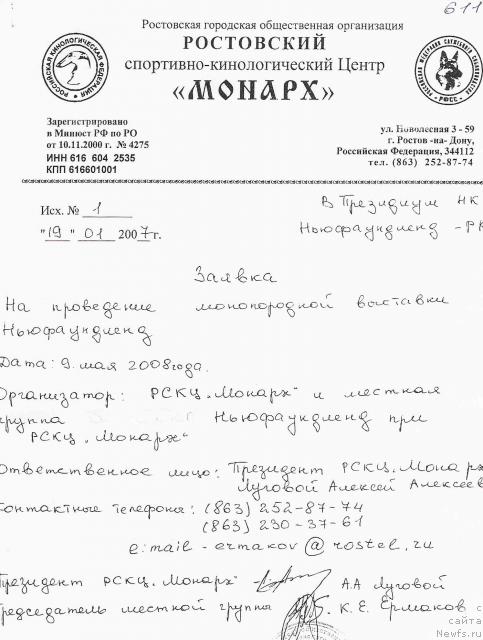 611
Ростовская городская общественная организация
РОСТОВСКИЙ
спортивно-кинологический Центр
«МОНАРХ»
РОССИЙСКАЯ КИНОЛОГИЧЕСКАЯ ФЕДЕРАЦИЯ
РОССИЙСКАЯ ФЕДЕРАЦИЯ СЛУЖЕБНОГО СОБАКОВОДСТВА
РФСС
Зарегистрировано
в Минюст РФ по РО
от 10.11.2000 г. № 4275
ИНН 616 604 2535
КПП 616601001
ул. Новолесная 3 - 59
г. Ростов -на- Дону,
Российская Федерация, 344112
тел. (863) 252-87-74
Исх. № 1
"19" 01 2007г.
В Президиум НК
Ньюфаундленд - РК
Заявка
На проведение монопородной выставки
Ньюфаундленд
Дата: 9. мая 2008 года.
Организатор: РСКЦ „Монарх" и местная
группа Ньюфаундленд при
РСКЦ „Монарх"
Ответственное лицо: Президент РСКЦ „Монарх
Луговой Алексей Алексеев
Контактные телефоны: (863) 252-87-74
(863) 230-37-61
e:mail - ermakov@rostel.ru
Президент РСКЦ „Монарх" А.А Луговой
Председатель местной группы К. Е. Ермаков
с сайта
Newfs.ru